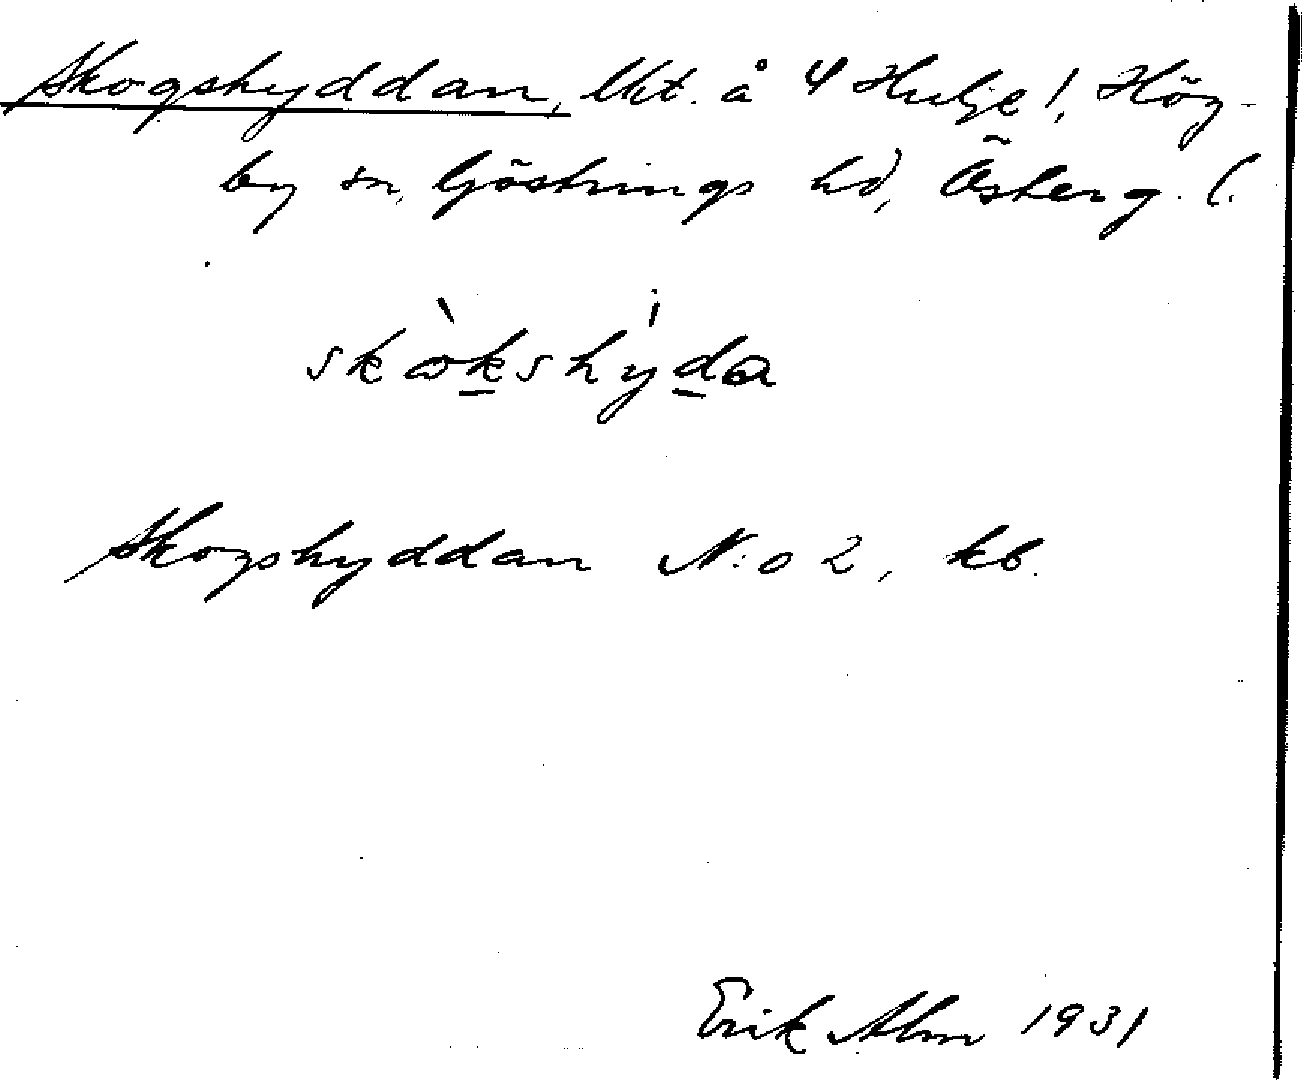 Skogshyddan, lht. å 4 Hulje!, Hög-
by sn, Göstrings hd, Österg. l.
skòkshýda
Skogshyddan N:o 2, kb.
Erik Alm 1931